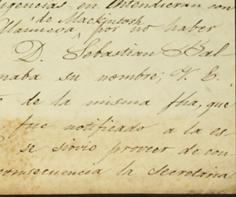 igencias, en Intendieran con
de Mackintosh
Manueva, por no haber
D. Sebastian Bal
naba su nombre; V. E.
de la misma fha, que
fue notificado a la es
se sirvio proveer de con
consecuencia la Secretaria